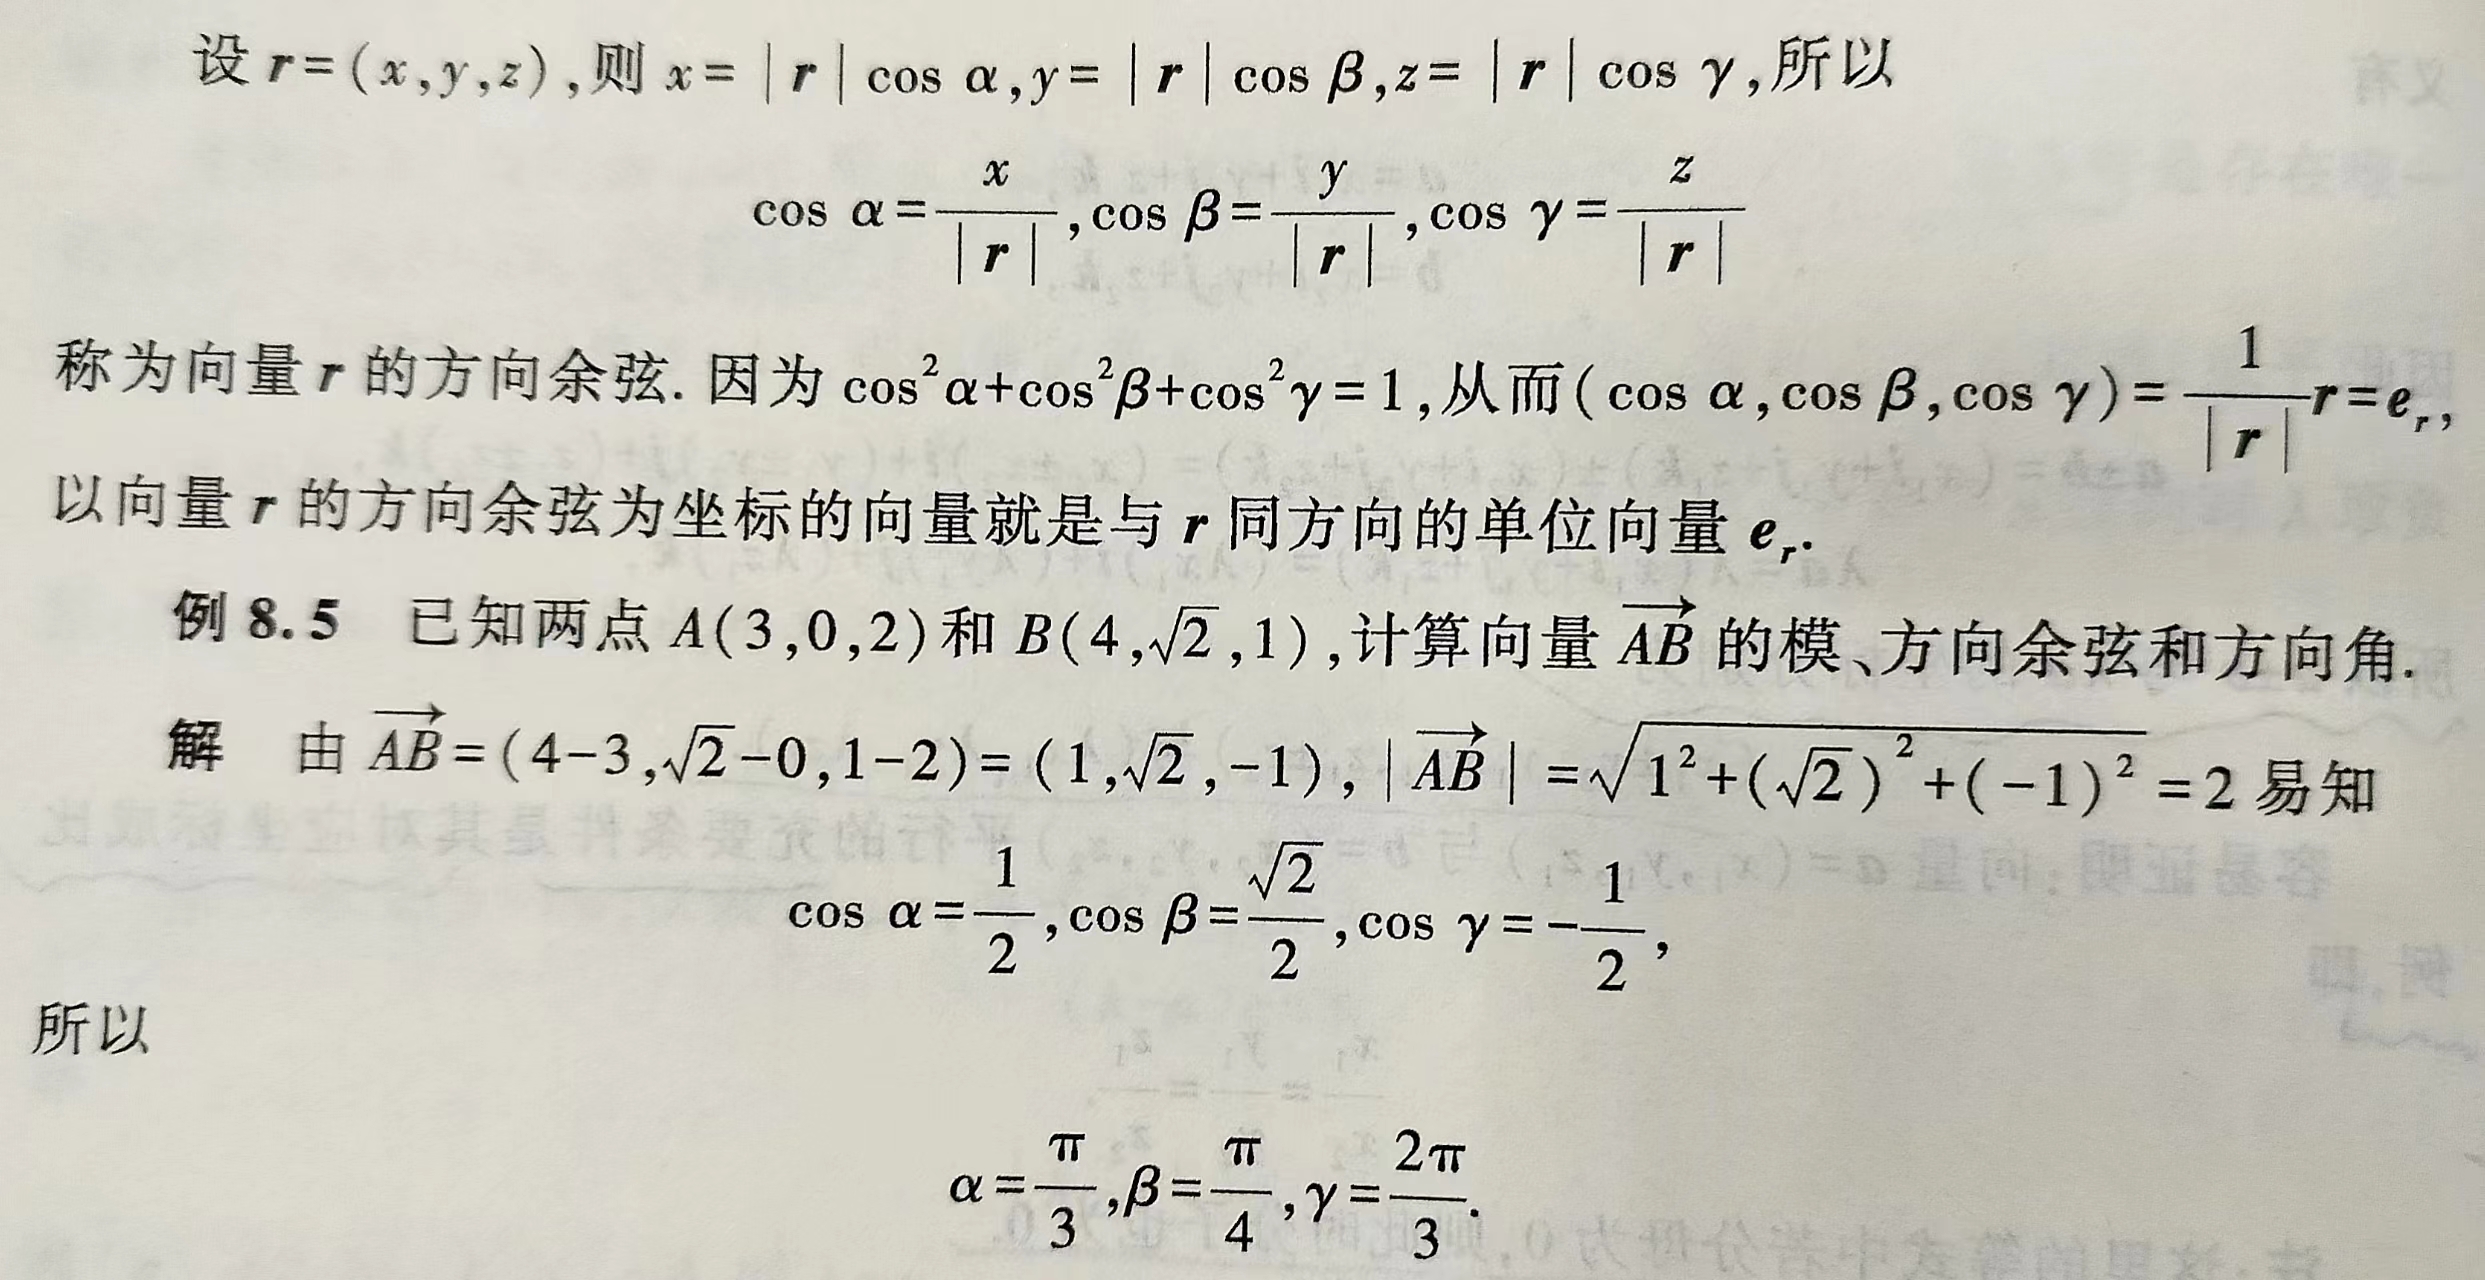 设 r=(x,y,z),则 x=|r|cos α,y=|r|cos β,z=|r|cos γ,所以
cos α=x/|r|,cos β=y/|r|,cos γ=z/|r|
称为向量 r 的方向余弦. 因为 cos²α+cos²β+cos²γ=1,从而(cos α,cos β,cos γ)=1/|r| r=eᵣ,
以向量 r 的方向余弦为坐标的向量就是与 r 同方向的单位向量 eᵣ.
例 8.5 已知两点 A(3,0,2)和 B(4,√2,1),计算向量 \overrightarrow{AB} 的模、方向余弦和方向角.
解 由 \overrightarrow{AB}=(4-3,√2-0,1-2)=(1,√2,-1),|\overrightarrow{AB}|=√(1²+(√2)²+(-1)²)=2 易知
cos α=1/2,cos β=√2/2,cos γ=-1/2,
所以
α=π/3,β=π/4,γ=2π/3.